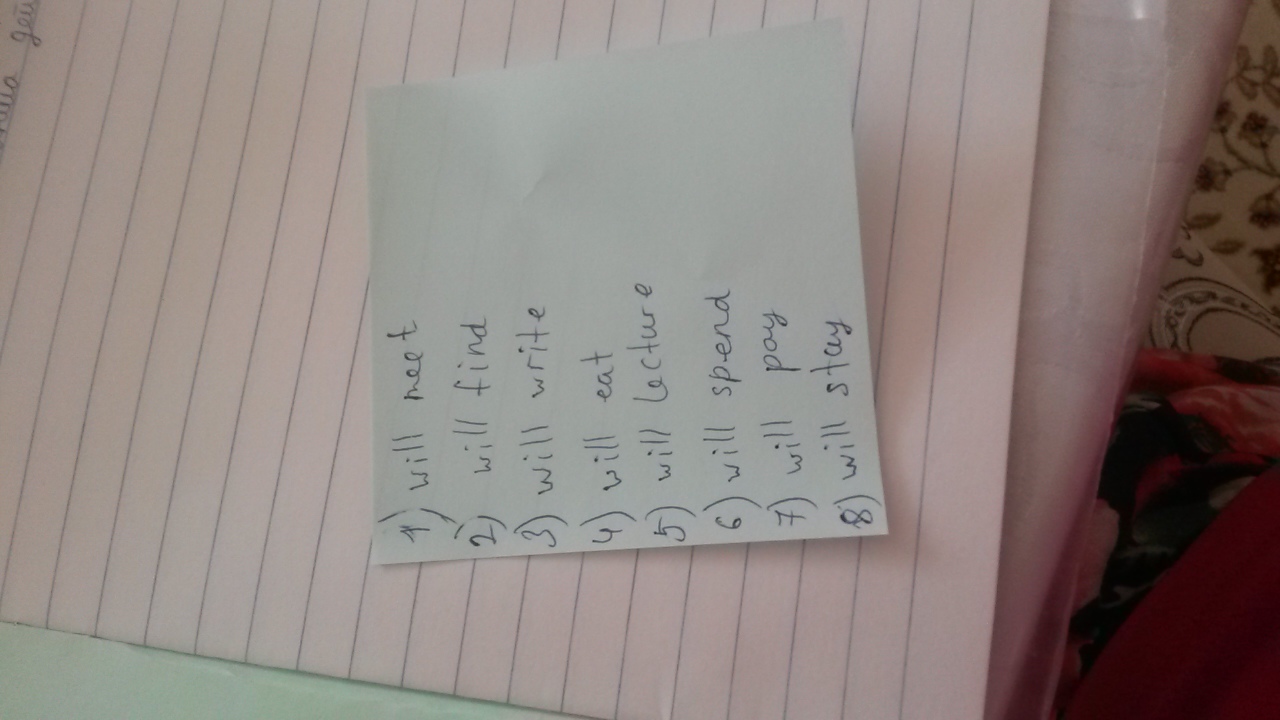 1) will meet
2) will find
3) will write
4) will eat
5) will lecture
6) will spend
7) will pay
8) will stay